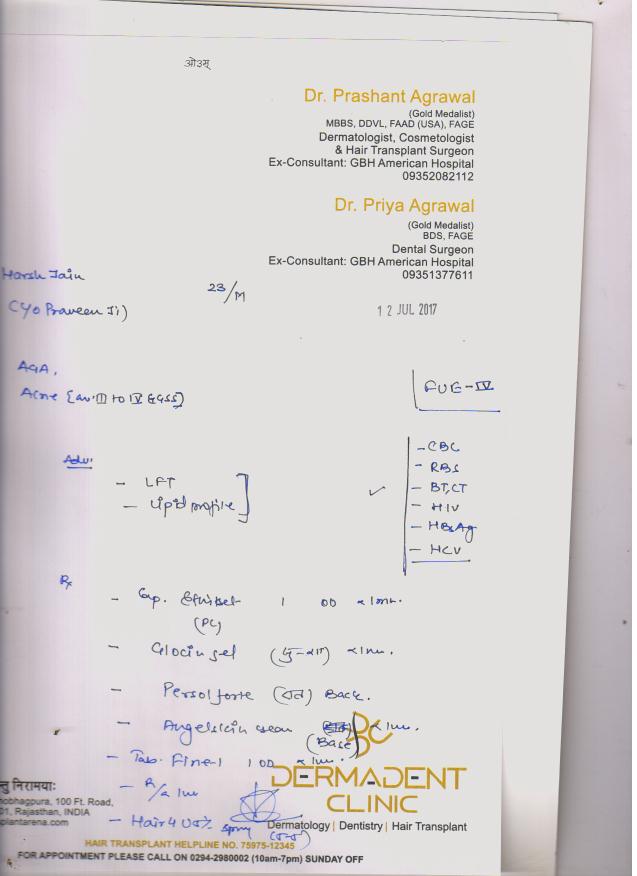 ओ३म्
Dr. Prashant Agrawal
(Gold Medalist)
MBBS, DDVL, FAAD (USA), FAGE
Dermatologist, Cosmetologist
& Hair Transplant Surgeon
Ex-Consultant: GBH American Hospital
09352082112
Dr. Priya Agrawal
(Gold Medalist)
BDS, FAGE
Dental Surgeon
Ex-Consultant: GBH American Hospital
09351377611
Harsh Jain
23/M
(Y/o Praveen Ji)
12 JUL 2017
AGA,
Acne
FUE-IV
Adv:
- LFT
- Lipid profile
- CBC
- RBS
- BT,CT
- HIV
- HBsAg
- HCV
Rx
- Cap. 1 OD x 1 m.
(PC)
- Glocin gel x 1 m.
- Persol forte Back.
- cream x 1 m.
(Base)
- Tab. Fine-1 1 OD x 1 m.
- R/a 1m
- Hair 4 U 5% spray
DERMADENT
CLINIC
Dermatology | Dentistry | Hair Transplant
न्तु निरामयाः
obhagpura, 100 Ft. Road,
01, Rajasthan, INDIA
plantarena.com
HAIR TRANSPLANT HELPLINE NO. 75975-12345
FOR APPOINTMENT PLEASE CALL ON 0294-2980002 (10am-7pm) SUNDAY OFF